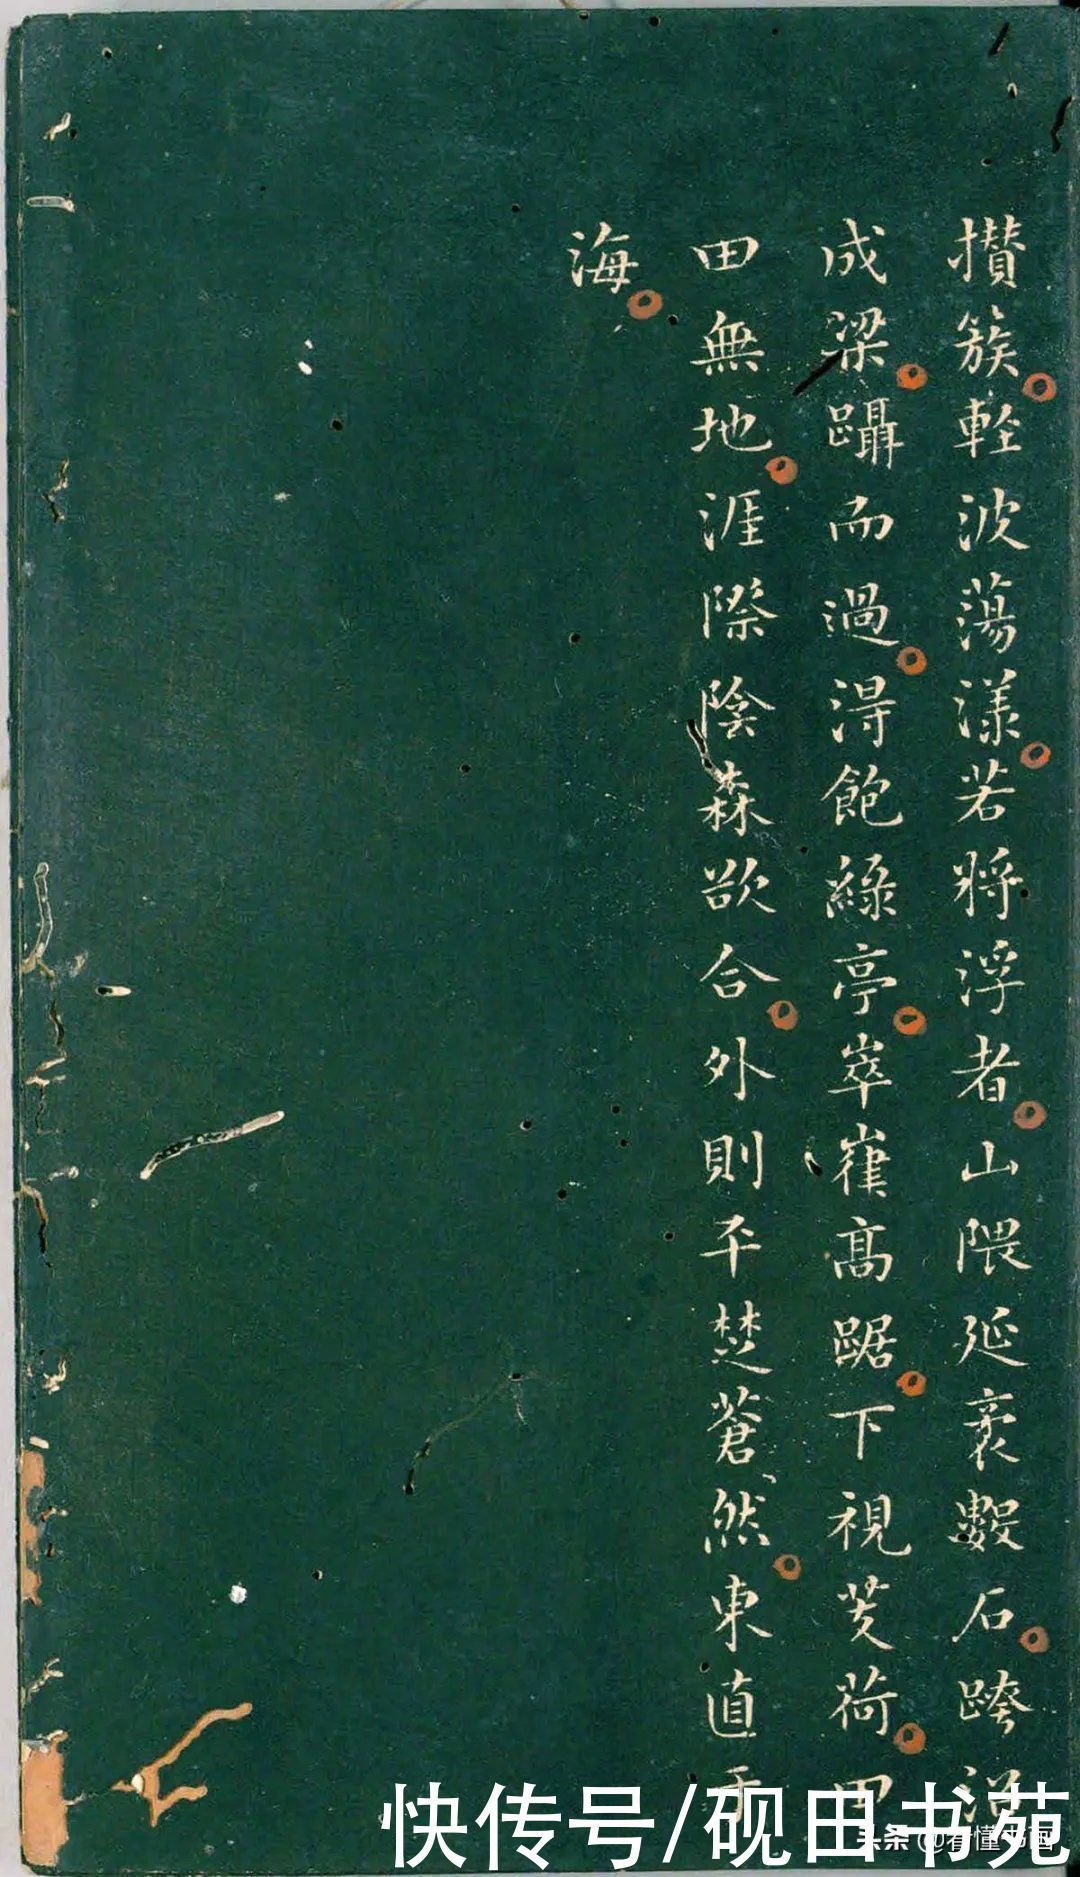 攢簇輕波蕩漾若將浮者山隈延袤數石跨沼
成梁躡而過得飽綠亭崒嵂高踞下視芰荷田
田無地涯際陰森欲合外則平楚蒼然東直于
海
快传号/砚田书苑
头条 @看懂书画